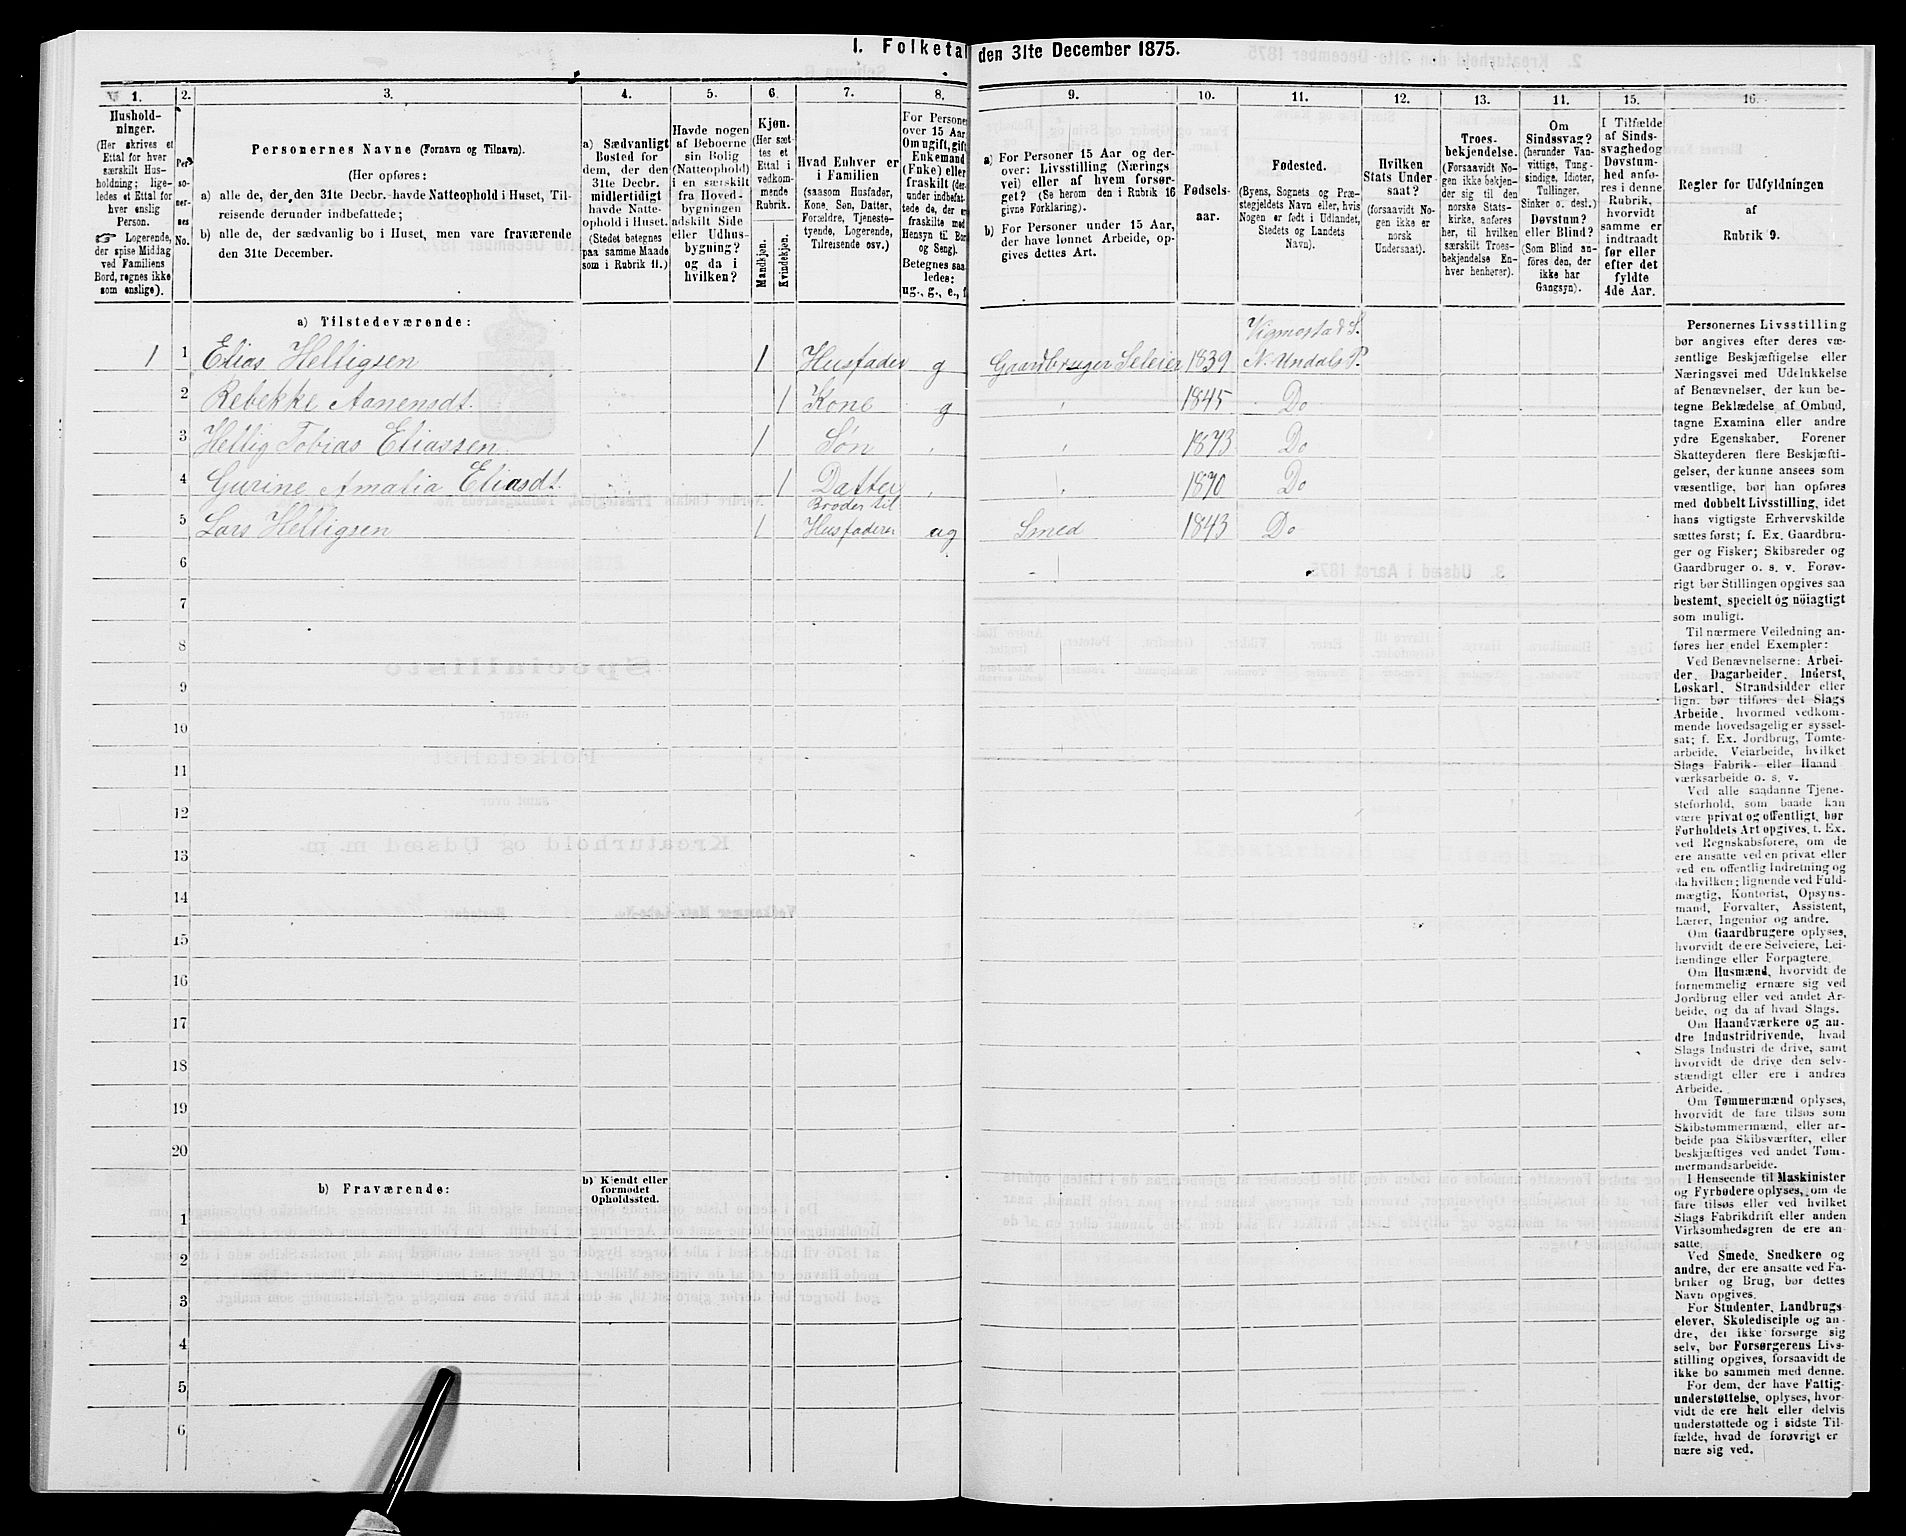 I. Folketal den 31te December 1875.
1. 2. 3. 4. 5. 6. 7. 8. 9. 10. 11. 12. 13. 14. 15. 16.
Hushold-
ninger.
(Her skrives et
Ettal for hver
særskilt Hus-
holdning; lige-
ledes et Ettal for
hver enslig
Person.
Logerende,
der spise Middag
ved Familiens
Bord, regnes ikke
som enslige).
Per-
so-
ner-
nes
No.
Personernes Navne (Fornavn og Tilnavn).
(Her opføres:
a) alle de, der den 31te Decbr. havde Natteophold i Huset, Til-
reisende derunder indbefattede;
b) alle de, der sædvanlig bo i Huset, men vare fraværende
den 31te December.
a) Sædvanligt
Bosted for
dem, der den
31te Decbr.
midlertidigt
havde Natte-
ophold i Huset.
(Stedet betegnes
paa samme Maade
som i Rubrik 11.)
Havde nogen
af Beboerne
sin Bolig
(Natteophold)
i en særskilt
fra Hoved-
bygningen
adskilt Side
eller Udhus-
bygning?
og da i
hvilken?
Kjøn.
(Her sæt-
tes et
Ettal i
vedkom-
mende
Rubrik.
Mandkjøn.
Kvindekjøn.
Hvad Enhver er
i Familien
(saasom Husfader,
Kone, Søn, Datter,
Forældre, Tjeneste-
tyende, Logerende,
Tilreisende osv.)
For Personer
over 15 Aar:
Om ugift, gift,
Enkemand
(Enke) eller
fraskilt (der-
under indbefat-
tede de, der er
fraskilte med
Hensyn til Bord
og Seng).
Betegnes saa-
ledes:
ug., g., e., f.
a) For Personer 15 Aar og der-
over: Livsstilling (Nærings-
vei) eller af hvem forsør-
get? (Se herom den i Rubrik 16
givne Forklaring).
b) For Personer under 15 Aar,
der have lønnet Arbeide, op-
gives dettes Art.
Fødsels-
aar.
Fødested.
(Byens, Sognets og Præ-
stegjeldets Navn eller, hvis
Nogen er født i Udlandet,
Stedets og Landets
Navn).
Hvilken
Stats Under-
saat?
(forsaavidt No-
gen ikke er
norsk
Undersaat).
Troes-
bekjendelse.
(Forsaavidt No-
gen ikke bekjen-
der sig til den
norske Stats-
kirke, anføres
her, til hvilken
særskilt Troes-
bekjendelse En-
hver henhører).
Om
Sindssvag?
(herunder Van-
vittige, Tung-
sindige, Idioter,
Tullinger,
Sinker o. desl.)
Døvstum?
eller Blind?
(Som Blind an-
føres den, der
ikke har
Gangsyn).
I Tilfælde
af Sinds-
svaghed og
Døvstum-
hed anfø-
res i denne
Rubrik,
hvorvidt
samme er
indtraadt
før eller
efter det
fyldte
4de Aar.
Regler for Udfyldningen
af
Rubrik 9.
a) Tilstedeværende:
Vigmostad S.
1 1 Elias Helligsen 1 Husfader g Gaardbruger Seleier 1839 N. Undals P.
2 Rebekke Aanensdt. 1 Kone g 1845 Do
3 Hellig Tobias Eliassen 1 Søn 1873 Do
4 Gurine Amalia Eliasdt. 1 Datter 1870 Do
Broder til
5 Lars Helligsen 1 Husfaderen ug Smed 1843 Do
6
7
8
9
10
11
12
13
14
15
16
17
18
19
20
b) Fraværende:
b) Kjendt eller
formodet
Opholdssted.
1
2
3
4
5
6
Personernes Livsstilling
bør angives efter deres væ-
sentlige Beskjæftigelse eller
Næringsvei med Udelukkelse
af Benævnelser, der kun be-
tegne Beklædelse af Ombud,
tagne Examina eller andre
ydre Egenskaber. Forener
Skatteyderen flere Beskjæfti-
gelser, der kunne ansees som
væsentlige, bør han opføres
med dobbelt Livsstilling, idet
hans vigtigste Erhvervskilde
sættes først; f. Ex. Gaardbru-
ger og Fisker; Skibsreder og
Gaardbruger o. s. v. Forøv-
rigt bør Stillingen opgives saa
bestemt, specielt og nöiagtigt
som muligt.
Til nærmere Veiledning an-
føres her endel Exempler:
Ved Benævnelserne: Arbei-
der, Dagarbeider, Inderst,
Løskarl, Strandsidder eller
lign. bør tilføres det Slags
Arbeide, hvormed vedkom-
mende hovedsagelig er syssel-
sat; f. Ex. Jordbrug, Tomte-
arbeide, Veiarbeide, hvilket
Slags Fabrik- eller Haand-
værksarbeide o. s. v.
Ved alle saadanne Tjene-
steforhold, som baade kan
være privat og offentligt, bør
Forholdets Art opgives, t. Ex.
ved Regnskabsførere, om de
ere ansatte ved en privat eller
ved en offentlig Indretning og
da hvilken; lignende ved Fuld-
mægtig, Kontorist, Opsyns-
mand, Forvalter, Assistent,
Lærer, Ingeniør og andre.
Om Gaardbrugere oplyses,
hvorvidt de ere Selveiere, Lei-
lændinge eller Forpagtere.
Om Husmænd, hvorvidt de
fornemmelig ernære sig ved
Jordbrug eller ved andet Ar-
beide, og da af hvad Slags.
Om Haandværkere og an-
dre Industridrivende, hvad
Slags Industri de drive, samt
hvorvidt de drive den selv-
stændigt eller ere i andres
Arbeide.
Om Tømmermænd oplyses,
hvorvidt de fare tilsøs som
Skibstømmermænd, eller ar-
beide paa Skibsværfter, eller
beskjæftiges ved andet Tøm-
mermandsarbeide.
I Henseende til Maskinister
og Fyrbødere oplyses, om de
fare tilsøs eller ved hvilket
Slags Fabrikdrift eller anden
Virksomhedsgren de ere an-
satte.
Ved Smede, Snedkere og
andre, der ere ansatte ved Fa-
briker og Brug, bør dettes
Navn opgives.
For Studenter, Landbrugs-
elever, Skoledisciple og an-
dre, der ikke forsørge sig
selv, bør Forsørgerens Livs-
stilling opgives, forsaavidt de
ikke bo sammen med denne.
For dem, der have Fattig-
understøttelse, oplyses, hvor-
vidt de ere helt eller delvis
understøttede og i sidste Til-
fælde, hvad de forøvrigt er-
nære sig ved.